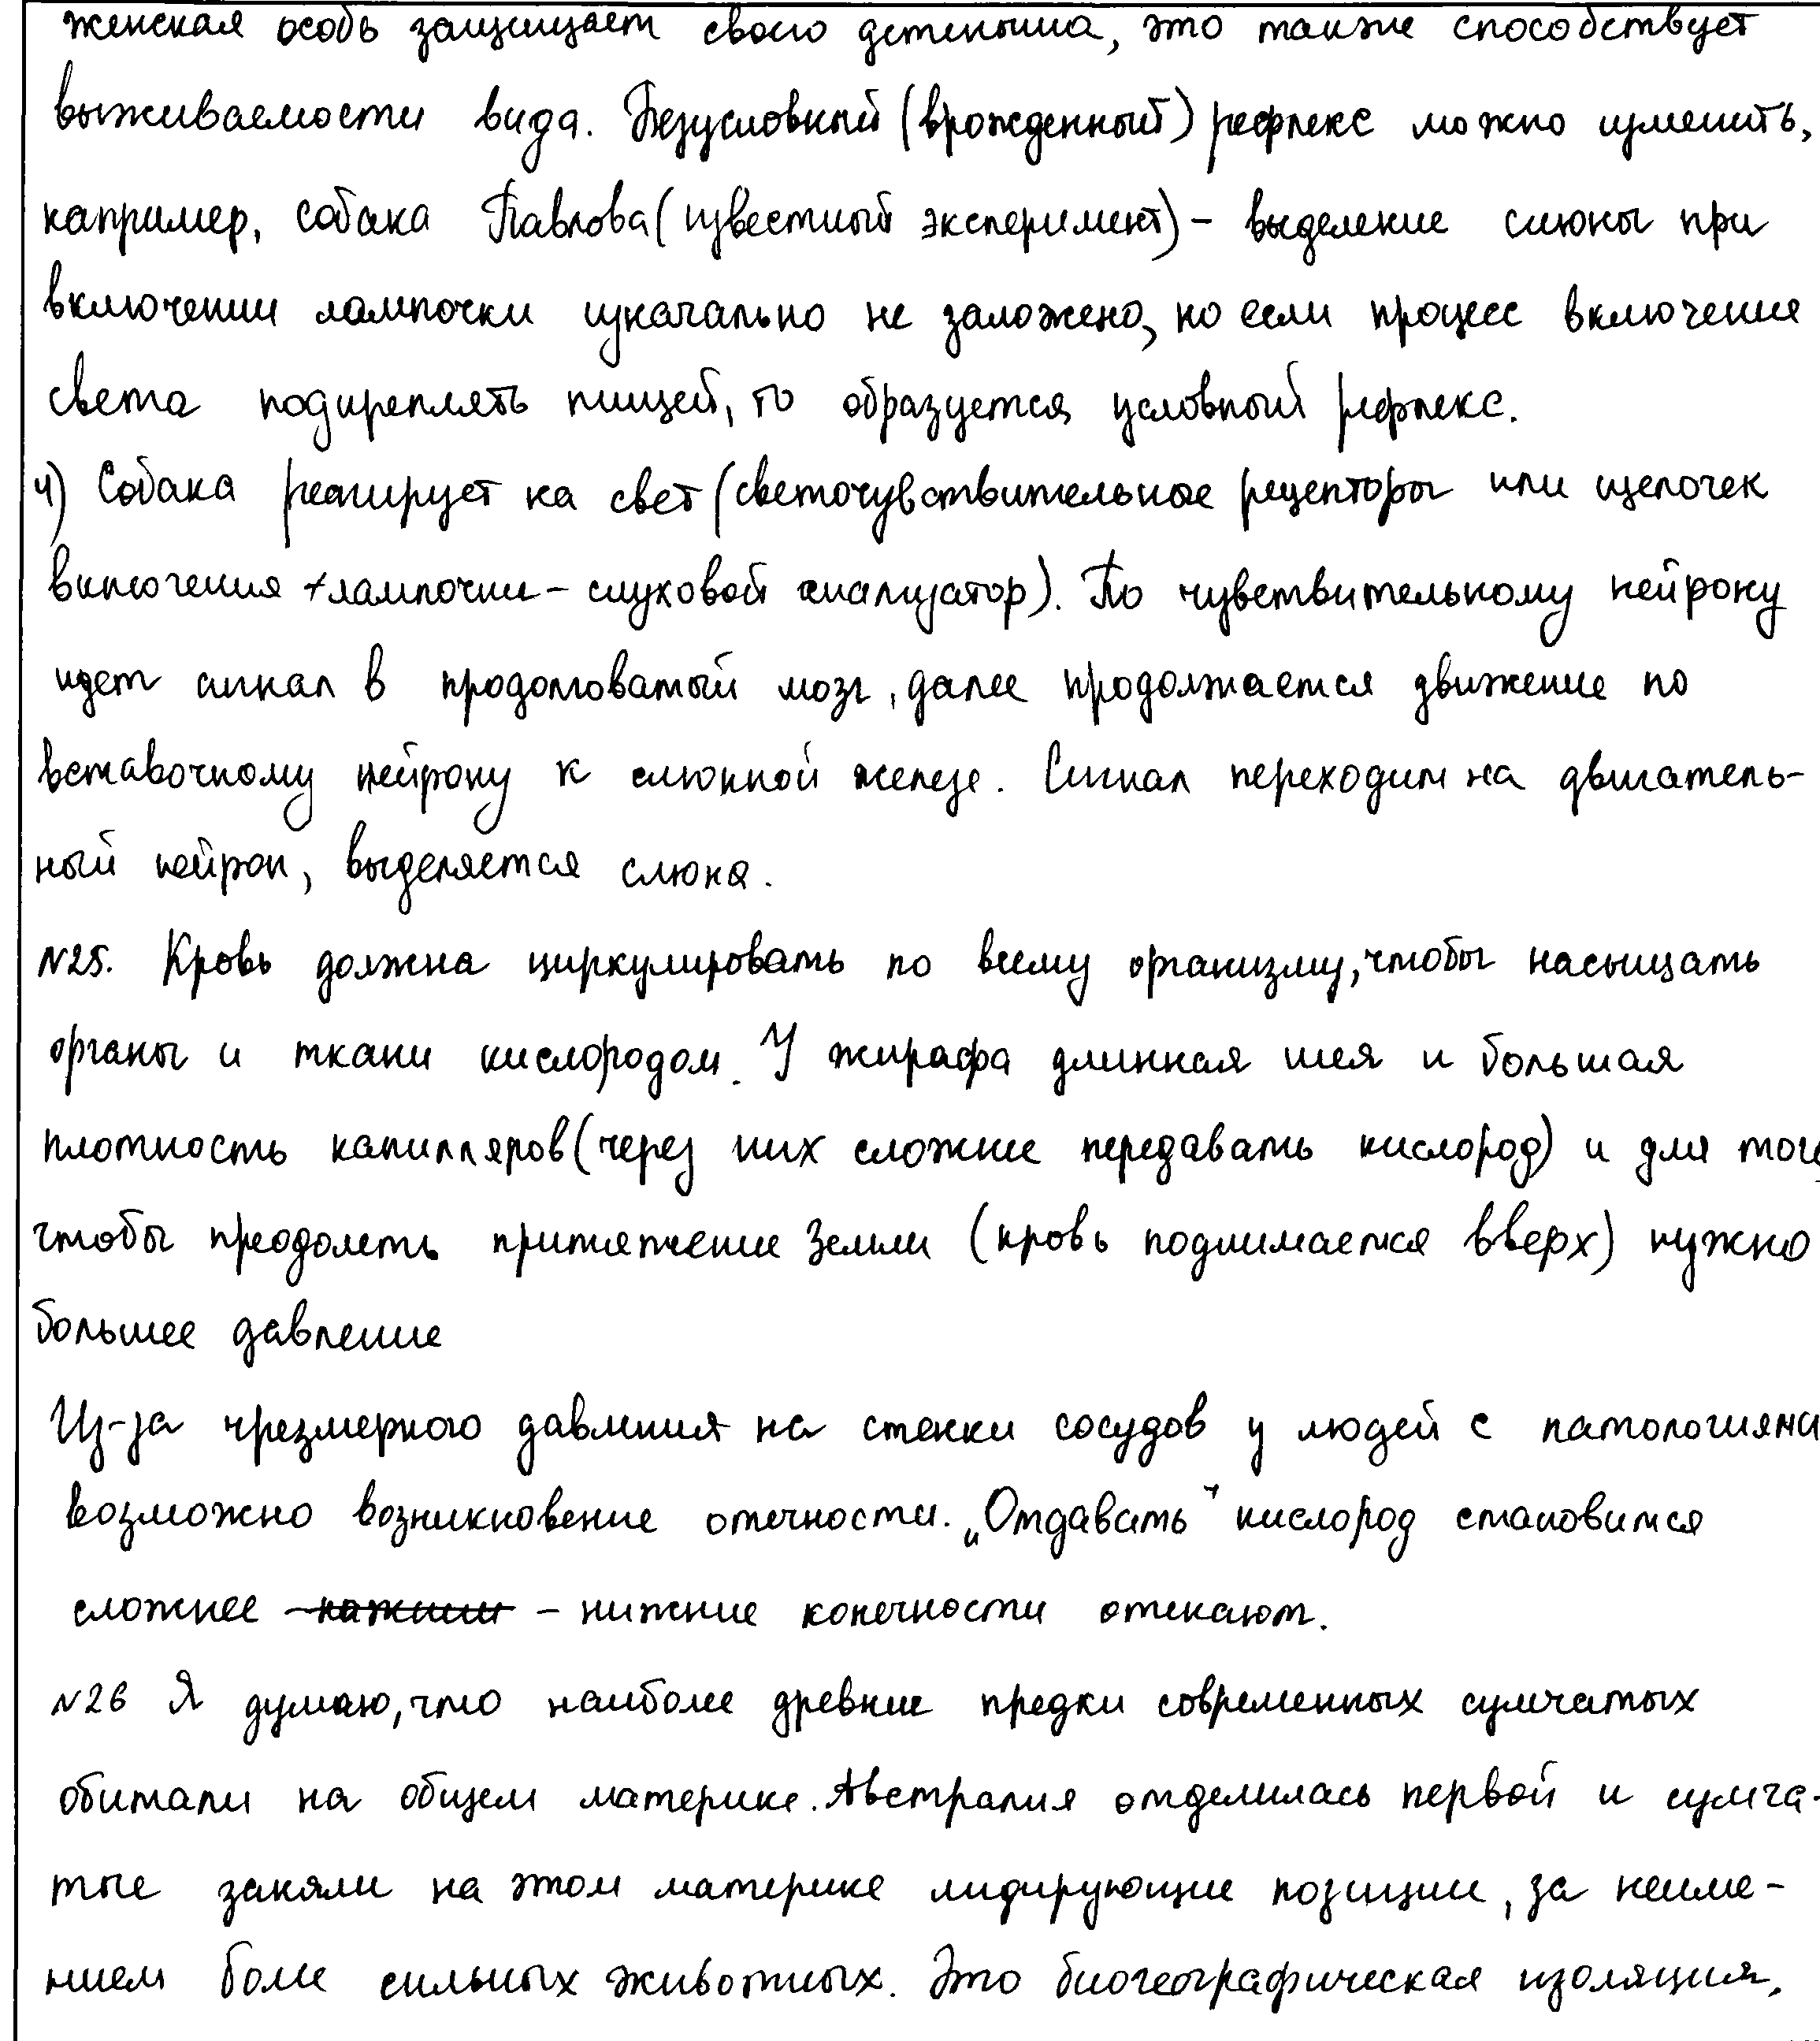 женская особь защищает своего детеныша, это также способствует
выживаемости вида. Безусловный (врожденный) рефлекс можно изменить,
например, собака Павлова (известный эксперимент) - выделение слюны при
включении лампочки изначально не заложено, но если процесс включения
света подкреплять пищей, то образуется условный рефлекс.
4) Собака реагирует на свет (светочувствительные рецепторы или щелочек
включения лампочки - слуховой анализатор). По чувствительному нейрону
идет сигнал в продолговатый мозг, далее продолжается движение по
вставочному нейрону к слюнной железе. Сигнал переходит на двигатель-
ный нейрон, выделяется слюна.
№25. Кровь должна циркулировать по всему организму, чтобы насыщать
органы и ткани кислородом. У жирафа длинная шея и большая
плотность капилляров (через них сложнее передавать кислород) и для того
чтобы преодолеть притяжение Земли (кровь поднимается вверх) нужно
большее давление
Из-за чрезмерного давления на стенки сосудов у людей с патологиями
возможно возникновение отечности. „Отдавать" кислород становится
сложнее - нижние конечности отекают.
№26 Я думаю, что наиболее древние предки современных сумчатых
обитали на общем материке. Австралия отделилась первой и сумча-
тые заняли на этом материке лидирующие позиции, за неиме-
нием более сильных животных. Это биогеографическая изоляция.